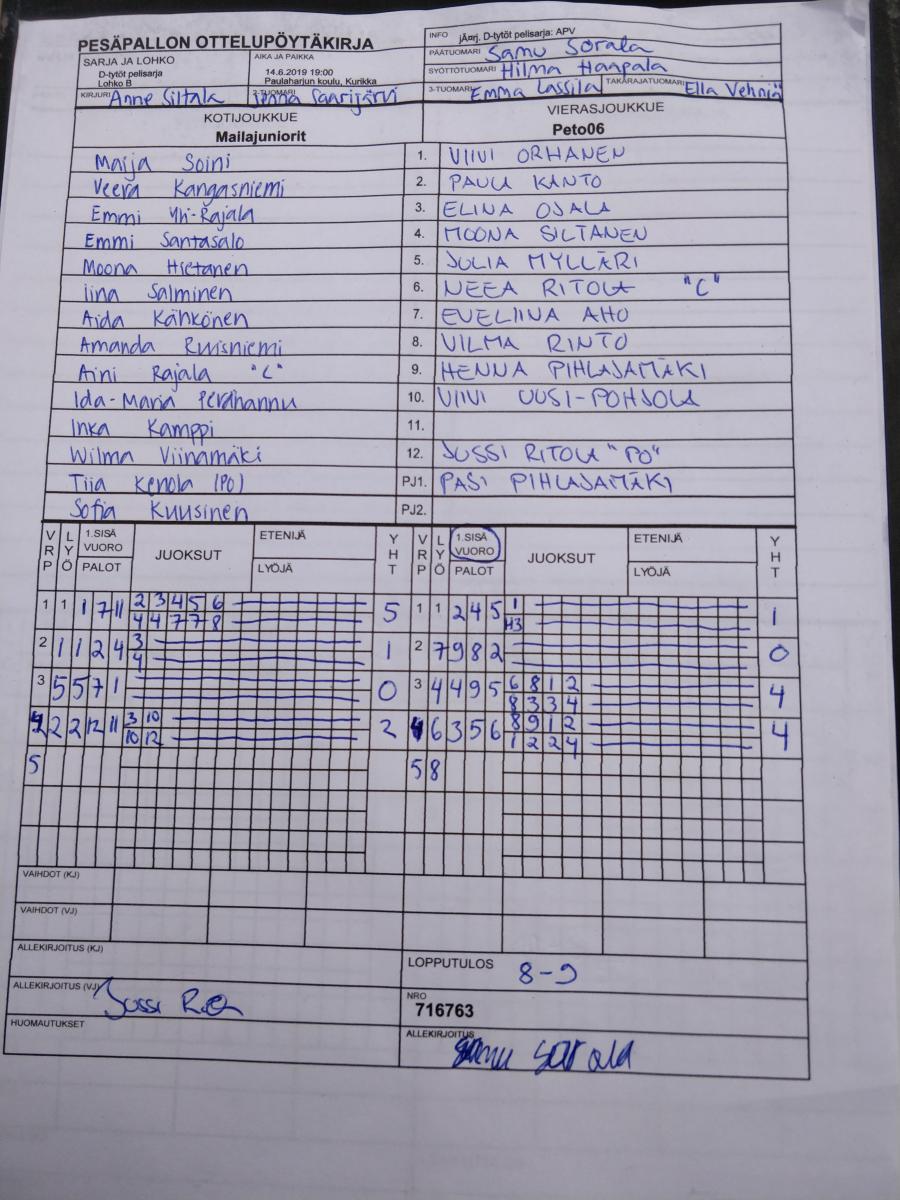 PESÄPALLON OTTELUPÖYTÄKIRJA
INFO jÃ¤rj. D-tytöt pelisarja: APV
PÄÄTUOMARI Samu Sorala
SARJA JA LOHKO
D-tytöt pelisarja
Lohko B
AIKA JA PAIKKA
14.6.2019 19:00
Paulaharjun koulu, Kurikka
SYÖTTÖTUOMARI Hilma Haapala
KIRJURI Anne Siltala
2-TUOMARI Jenna Saarijärvi
3-TUOMARI Emma Lassila
TAKARAJATUOMARI Ella Vehniä
KOTIJOUKKUE
Mailajuniorit
VIERASJOUKKUE
Peto06
Maija Soini 1. VIIVI ORHANEN
Veera Kangasniemi 2. PAULA KANTO
Emmi Yli-Rajala 3. ELINA OJALA
Emmi Santasalo 4. MOONA SILTANEN
Moona Hietanen 5. JULIA MYLLÄRI
Iina Salminen 6. NEEA RITOLA "C"
Aida Kähkönen 7. EVELIINA AHO
Amanda Ruisniemi 8. VILMA RINTO
Aini Rajala "C" 9. HENNA PIHLAJAMÄKI
Ida-Maria Perähannu 10. VIIVI UUSI-POHJOLA
Inka Kamppi 11.
Wilma Viinamäki 12. JUSSI RITOLA "PO"
Tiia Kenola (PO) PJ1. PASI PIHLAJAMÄKI
Sofia Kuusinen PJ2.
VRP LYÖ 1.SISÄ VUORO PALOT JUOKSUT ETENIJÄ LYÖJÄ YHT VRP LYÖ 1.SISÄ VUORO PALOT JUOKSUT ETENIJÄ LYÖJÄ YHT
1 1 1 7 11 2 3 4 5 6 5 1 1 2 4 5 1 1
4 4 7 7 8 H3
2 1 1 2 4 3 1 2 7 9 8 2 0
4
3 5 5 7 1 0 3 4 4 9 5 6 8 1 2 4
8 3 3 4
4 2 2 12 11 3 10 2 4 6 3 5 6 8 9 1 2 4
10 12 1 2 2 4
5 5 8
VAIHDOT (KJ)
VAIHDOT (VJ)
ALLEKIRJOITUS (KJ)
LOPPUTULOS 8-9
ALLEKIRJOITUS (VJ) Jussi
NRO
716763
HUOMAUTUKSET
ALLEKIRJOITUS Samu Sorala